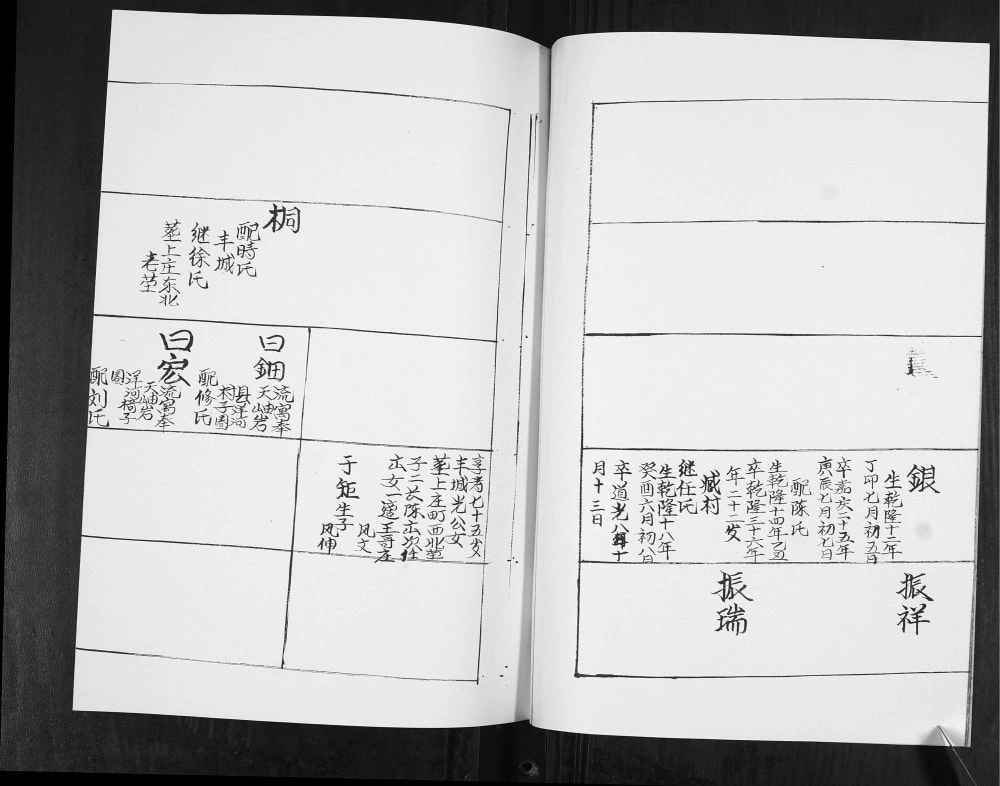 銀
生乾隆十二年
丁卯七月初五日
卒嘉庆二十五年
庚辰七月初七日
配陈氏
生乾隆十四年己丑
卒乾隆三十六年
年二十二岁
臧村
继任氏
生乾隆十八年
癸酉六月初八日
卒道光八年十
月十三日
振祥
振瑞
桐
配時氏
丰城
继徐氏
茔上庄东北
老茔
曰鈿
流寓奉
天岫岩
县洋河
村子圈
配修氏
曰宏
流寓奉
天岫岩
洋河椅子
圈
配刘氏
享寿七十五岁
丰城光公女
茔上庄町西北茔
子二长陈出次任
出女一适王哥庄
凤文
于鉅生子
凤伸